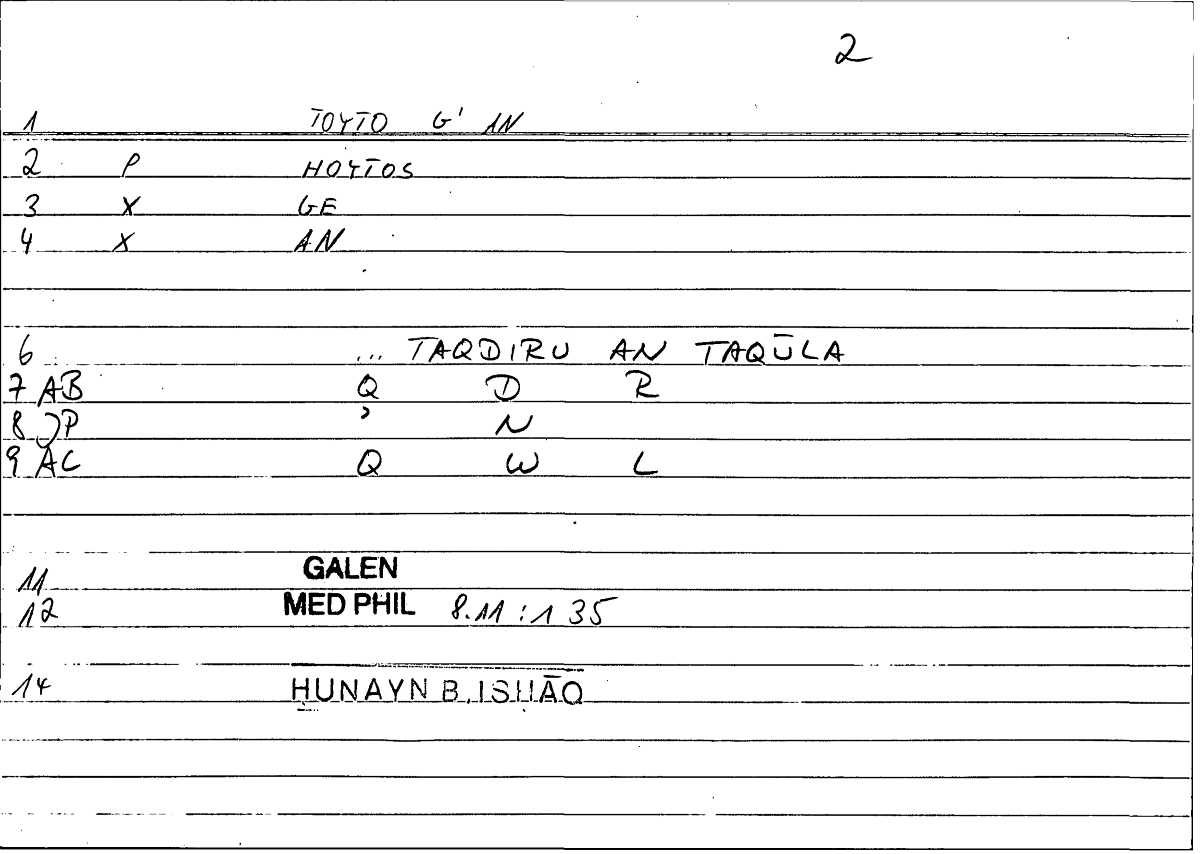 2
1 TOYTO G' AN
2 P HOYTOS
3 X GE
4 X AN
6 ... TAQDIRU AN TAQŪLA
7 AB Q D R
8 JP ʾ N
9 AC Q W L
11 GALEN
12 MED PHIL 8.11 : 1 35
14 ḤUNAYN B. ISḤĀQ